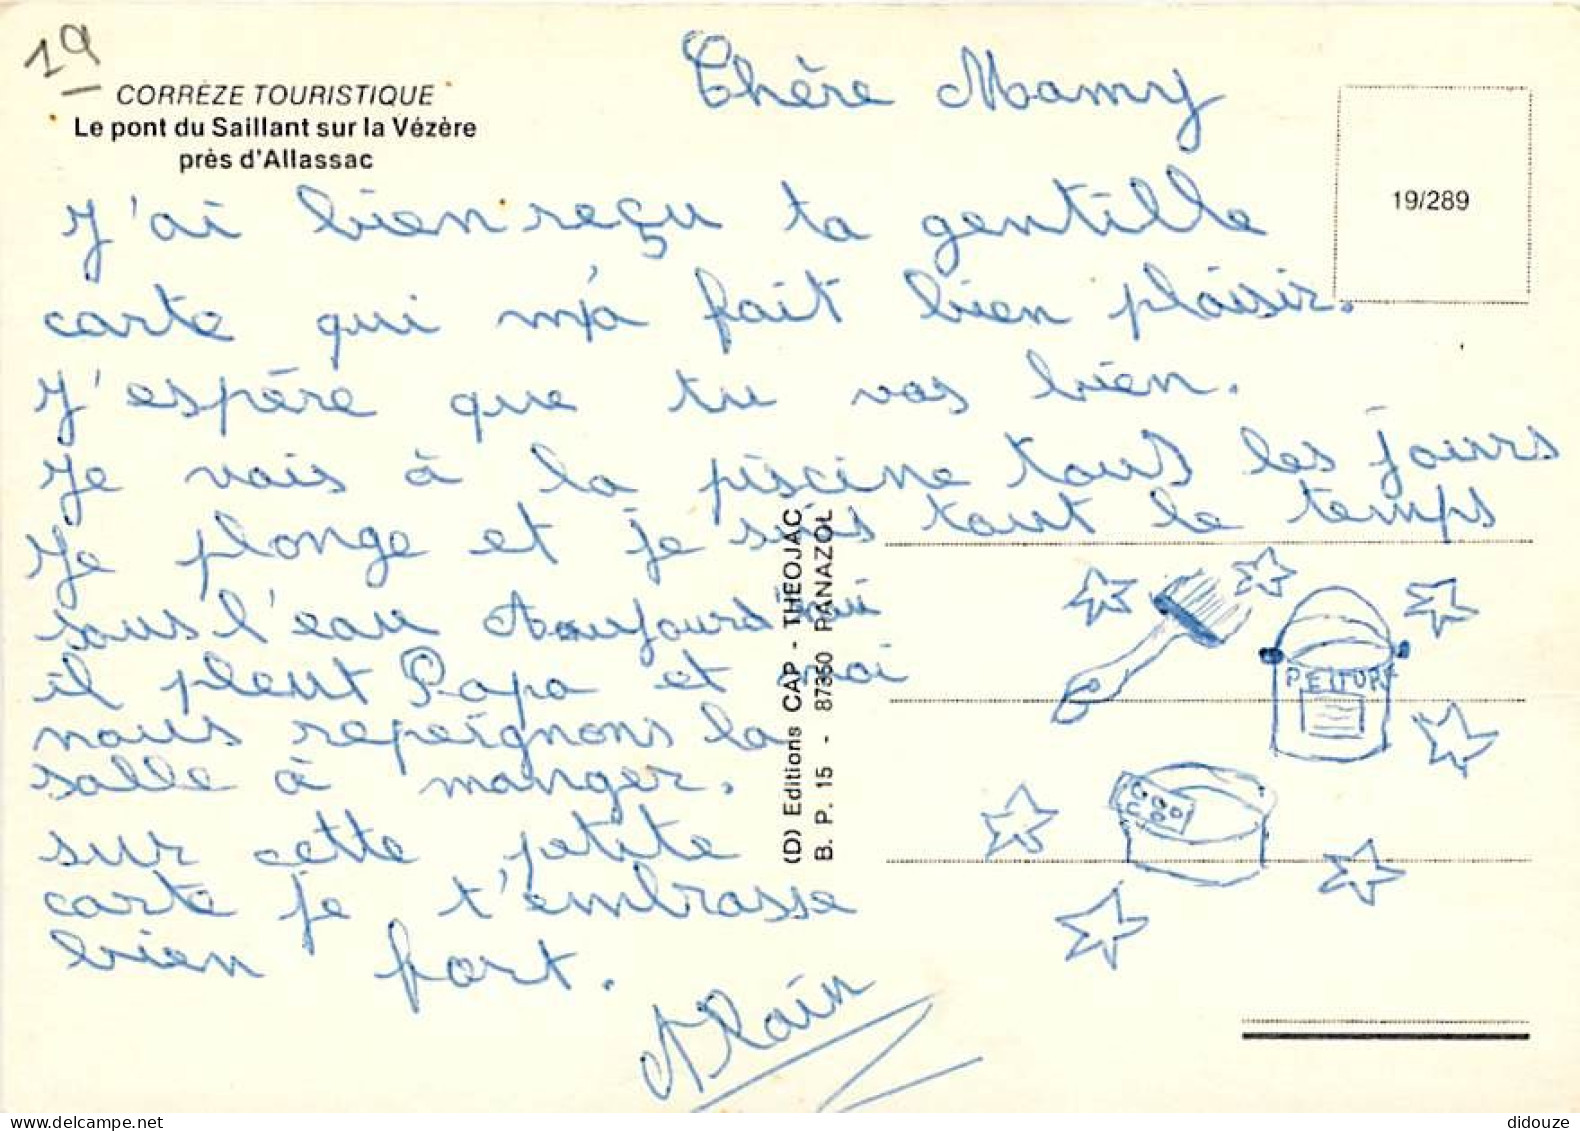 19
CORRÈZE TOURISTIQUE
Le pont du Saillant sur la Vézère
près d'Allassac
19/289
Chère Mamy
J'ai bien reçu ta gentille
carte qui m'a fait bien plaisir.
J'espère que tu vas bien.
Je vais à la piscine tous les jours
Je plonge et je suis tout le temps
sous l'eau Aoujourd'hui
il pleut Papa et moi
nous repeignons la
salle à manger.
sur cette petite
carte je t'embrasse
bien fort.
Alain
(D) Editions CAP - THEOJAC
B. P. 15 - 87350 PANAZOL
PEITURE
didouze